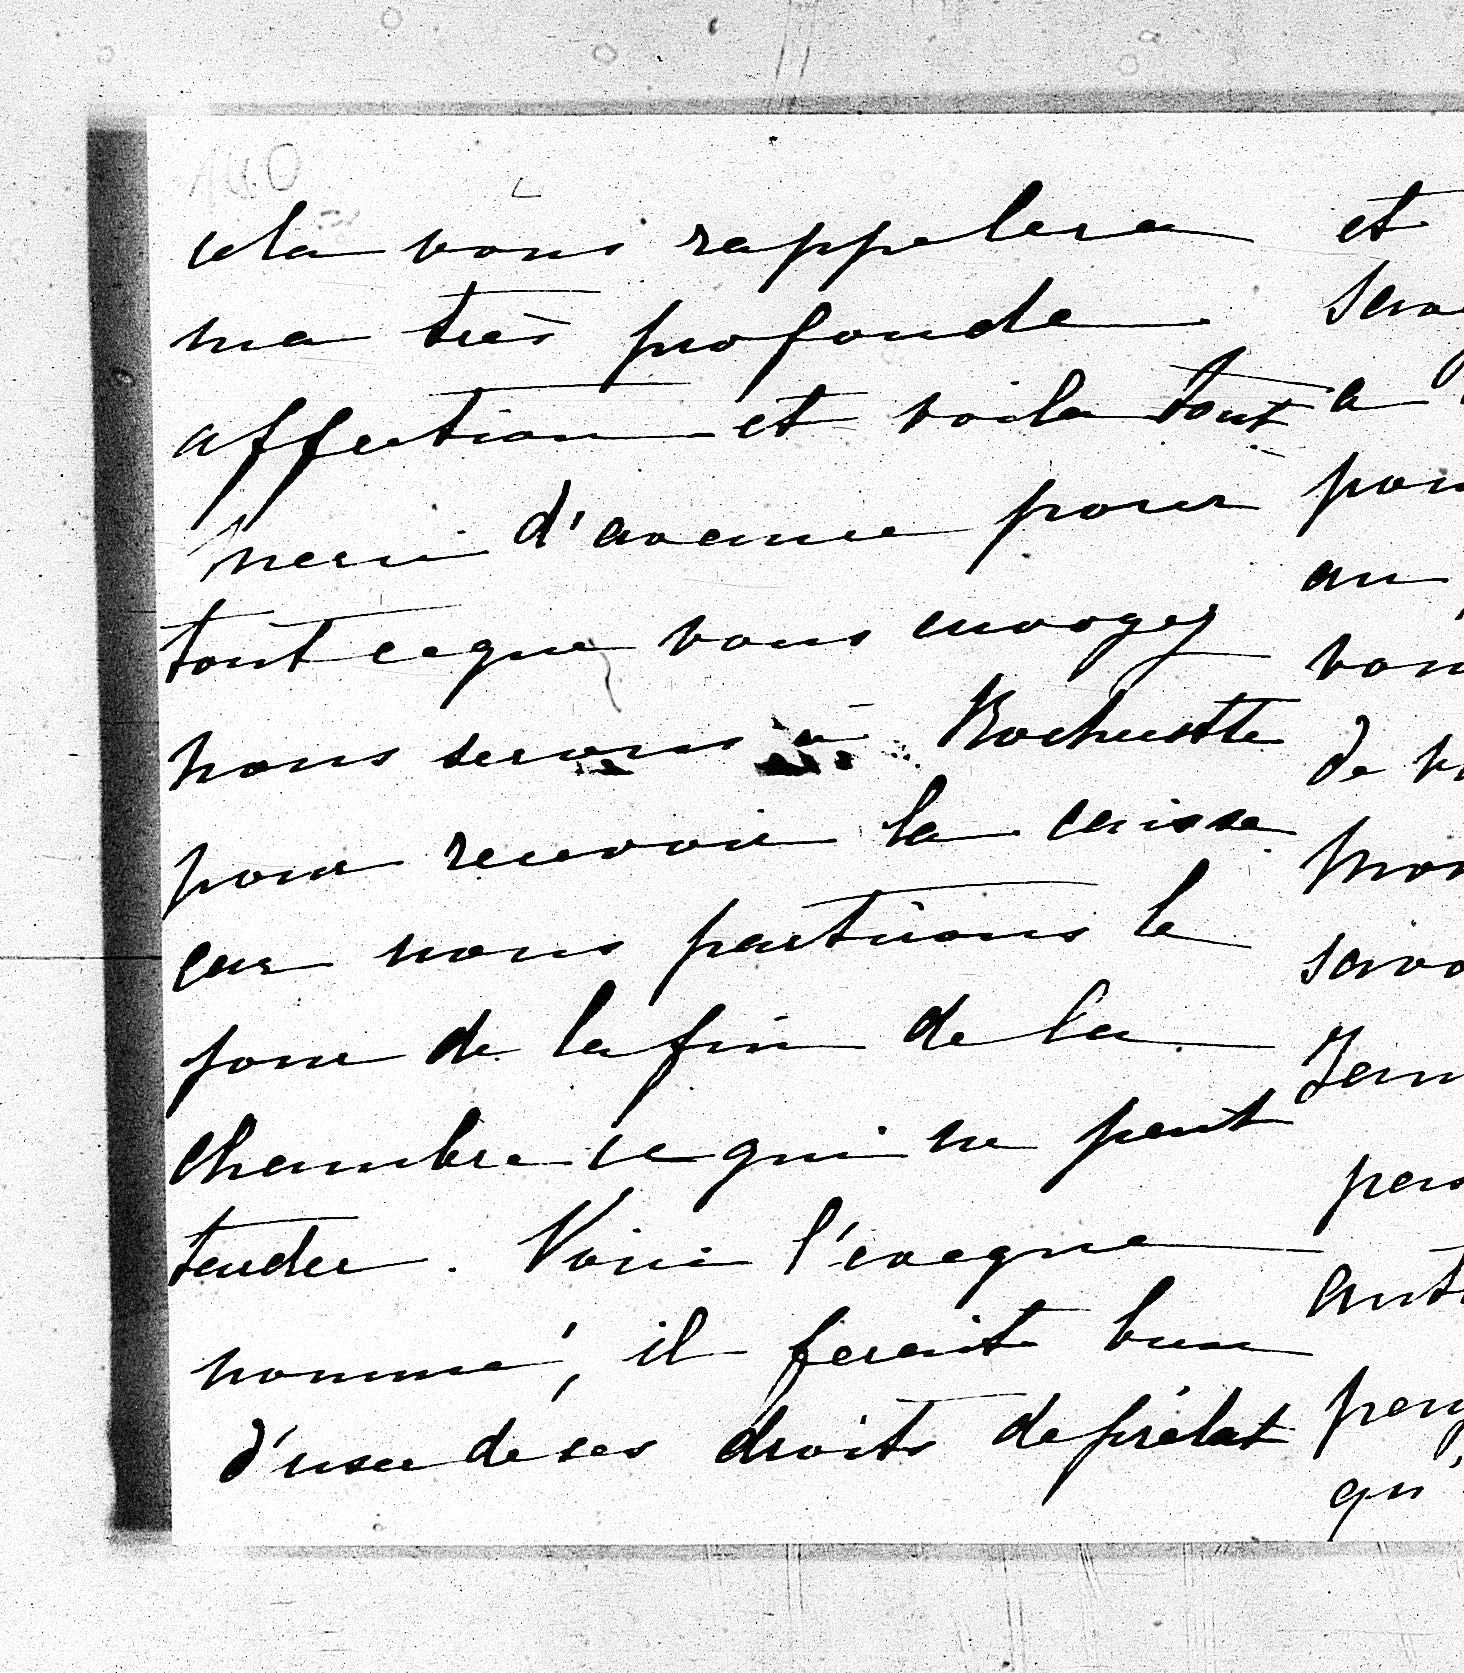 140
cela vous rappelera
ma très profonde
affection et voila tout
merci d'avance pour
tout ce que vous envoyez
nous serons à Rochecotte
pour recevoir la caisse
car nous partirons le
jour de la fin de la
chambre ce qui ne peut
tarder. Voici l'évêque
nommé, il ferait bien
d'user de ses droits de prélat
et
a
pour
au
vous
de
qu'